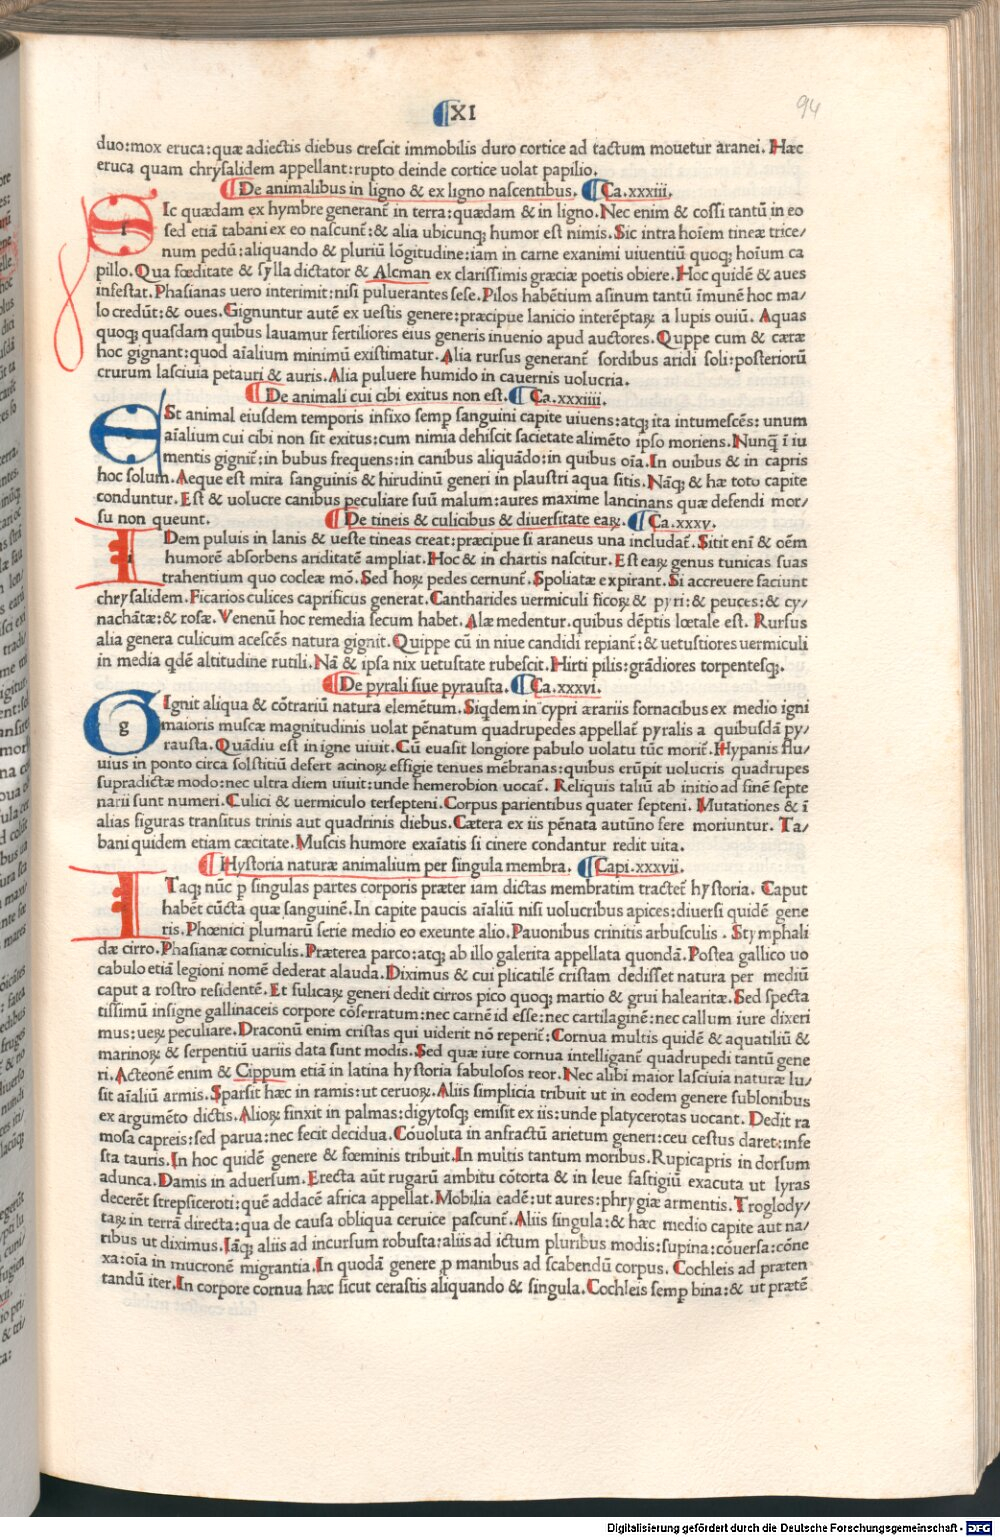 XI
94
duo:mox eruca:quæ adiectis diebus crescit immobilis duro cortice ad tactum mouetur aranei. Hæc
eruca quam chrysalidem appellant:rupto deinde cortice uolat papilio.
De animalibus in ligno & ex ligno nascentibus. Ca.xxxiii.
SIc quædam ex hymbre generant̃ in terra:quædam & in ligno.Nec enim & cossi tantū in eo
sed etiā tabani ex eo nascunt̃:& alia ubicunq; humor est nimis. Sic intra hoīem tineæ trice/
num pedū:aliquando & pluriū lōgitudine:iam in carne exanimi uiuentiū quoq; hoīum ca
pillo.Qua fœditate & sylla dictator & Alcman ex clarissimis græciæ poetis obiere.Hoc quidē & aues
infestat.Phasianas uero interimit:nisi puluerantes sese.Pilos habētium asinum tantū īmunē hoc ma/
lo credūt:& oues.Gignuntur autē ex uestis genere:præcipue lanicio interēptaꝝ a lupis ouiū. Aquas
quoq; quasdam quibus lauamur fertiliores eius generis inuenio apud auctores. Quppe cum & caræ
hoc gignant:quod aīalium minimū existimatur. Alia rursus generant̃ sordibus aridi soli:posteriorū
crurum lasciuia petauri & auris. Alia puluere humido in cauernis uolucria.
De animali cui cibi exitus non est. Ca.xxxiiii.
ESt animal eiusdem temporis infixo semp̱ sanguini capite uiuens:atq; ita intumescēs: unum
aīalium cui cibi non sit exitus:cum nimia dehiscit sacietate alimēto ipso moriens.Nunq̄ ī iu
mentis gignit̃:in bubus frequens:in canibus aliquādo:in quibus oīa.In ouibus & in capris
hoc solum.Aeque est mira sanguinis & hirudinū generi in plaustri aqua sitis.Nāq; & hæ toto capite
conduntur.Est & uolucre canibus peculiare suū malum:aures maxime lancinans quæ defendi mor/
su non queunt.
De tineis & culicibus & diuersitate eaꝝ. Ca.xxxv.
IDem puluis in lanis & ueste tineas creat:præcipue si araneus una includat̃.Sitit enī & oēm
humorē absorbens ariditatē ampliat.Hoc & in chartis nascitur.Est eaꝝ genus tunicas suas
trahentium quo cocleæ mō.Sed hoꝝ pedes cernunt̃.Spoliatæ expirant.Si accreuere faciunt
chrysalidem.Ficarios culices caprificus generat.Cantharides uermiculi ficoꝝ & pyri:& peuces:& cy/
nachātæ:& rosæ. Venenū hoc remedia secum habet.Alæ medentur.quibus dēptis lœtale est. Rursus
alia genera culicum acescēs natura gignit.Quippe cū in niue candidi repiant̃:& uetustiores uermiculi
in media qdē altitudine rutili.Nā & ipsa nix uetustate rubescit.Hirti pilis:grādiores torpentesq;.
De pyrali siue pyrausta. Ca.xxxvi.
GIgnit aliqua & cōtrariū natura elemētum.Siqdem in cypri ærariis fornacibus ex medio igni
maioris muscæ magnitudinis uolat pēnatum quadrupedes appellat̃ pyralis a quibusdā py/
rausta.Quādiu est in igne uiuit.Cū euasit longiore pabulo uolatu tūc morit̃.Hypanis flu/
uius in ponto circa solstitiū defert acinoꝝ effigie tenues mēbranas:quibus erūpit uolucris quadrupes
supradictæ modo:nec ultra diem uiuit:unde hemerobion uocat̃. Reliquis taliū ab initio ad finē septe
narii sunt numeri.Culici & uermiculo terseptem.Corpus parientibus quater septeni. Mutationes & ī
alias figuras transitus trinis aut quadrinis diebus.Cætera ex iis pēnata autūno fere moriuntur. Ta/
bani quidem etiam cæcitate.Muscis humore exaīatis si cinere condantur redit uita.
Hystoria naturæ animalium per singula membra. Capi.xxxvii.
ITaq; nūc p̱ singulas partes corporis præter iam dictas membratim tractet̃ hystoria. Caput
habēt cūcta quæ sanguinē.In capite paucis aīaliū nisi uolucribus apices:diuersi quidē gene
ris.Phœnici plumarū serie medio eo exeunte alio.Pauonibus crinitis arbusculis . Stymphali
dæ cirro.Phasianæ corniculis.Præterea parco:atq; ab illo galerita appellata quondā.Postea gallico uo
cabulo etiā legioni nomē dederat alauda.Diximus & cui plicatilē cristam dedisset natura per mediū
caput a rostro residentē.Et fulicaꝝ generi dedit cirros pico quoq; martio & grui halearitæ.Sed specta
tissimū insigne gallinaceis corpore cōserratum:nec carnē id esse:nec cartilaginē:nec callum iure dixeri
mus:ueꝝ peculiare.Draconū enim cristas qui uiderit nō reperit̃:Cornua multis quidē & aquatiliū &
marinoꝝ & serpentiū uariis data sunt modis.Sed quæ iure cornua intelligant̃ quadrupedi tantū gene
ri.Acteonē enim & Cippum etiā in latina hystoria fabulosos reor.Nec alibi maior lasciuia naturæ lu/
sit aīaliū armis.Sparsit hæc in ramis:ut ceruoꝝ.Aliis simplicia tribuit ut in eodem genere sublonibus
ex argumēto dictis.Alioꝝ finxit in palmas:digytosq; emisit ex iis:unde platycerotas uocant. Dedit ra
mosa capreis:sed parua:nec fecit decidua.Cōuoluta in anfractū arietum generi:ceu cestus daret:infe
sta tauris.In hoc quidē genere & fœminis tribuit.In multis tantum moribus.Rupicapris in dorsum
adunca.Damis in aduersum.Erecta aūt rugarū ambitu cōtorta & in leue fastigiū exacuta ut lyras
decerēt strepsiceroti:quē addacē africa appellat.Mobilia eadē:ut aures:phrygiæ armentis.Troglody/
taꝝ in terrā directa:qua de causa obliqua ceruice pascunt̃.Aliis singula:& hæc medio capite aut na/
ribus ut diximus.Iāq; aliis ad incursum robusta:aliis ad ictum pluribus modis:supina:cōuersa:cōne
xa:oīa in mucronē migrantia.In quodā genere p̱ manibus ad scabendū corpus. Cochleis ad præten
tandū iter.In corpore cornua hæc sicut cerastis aliquando & singula.Cochleis semp̱ bina:& ut prætē
Digitalisierung gefördert durch die Deutsche Forschungsgemeinschaft - DFG